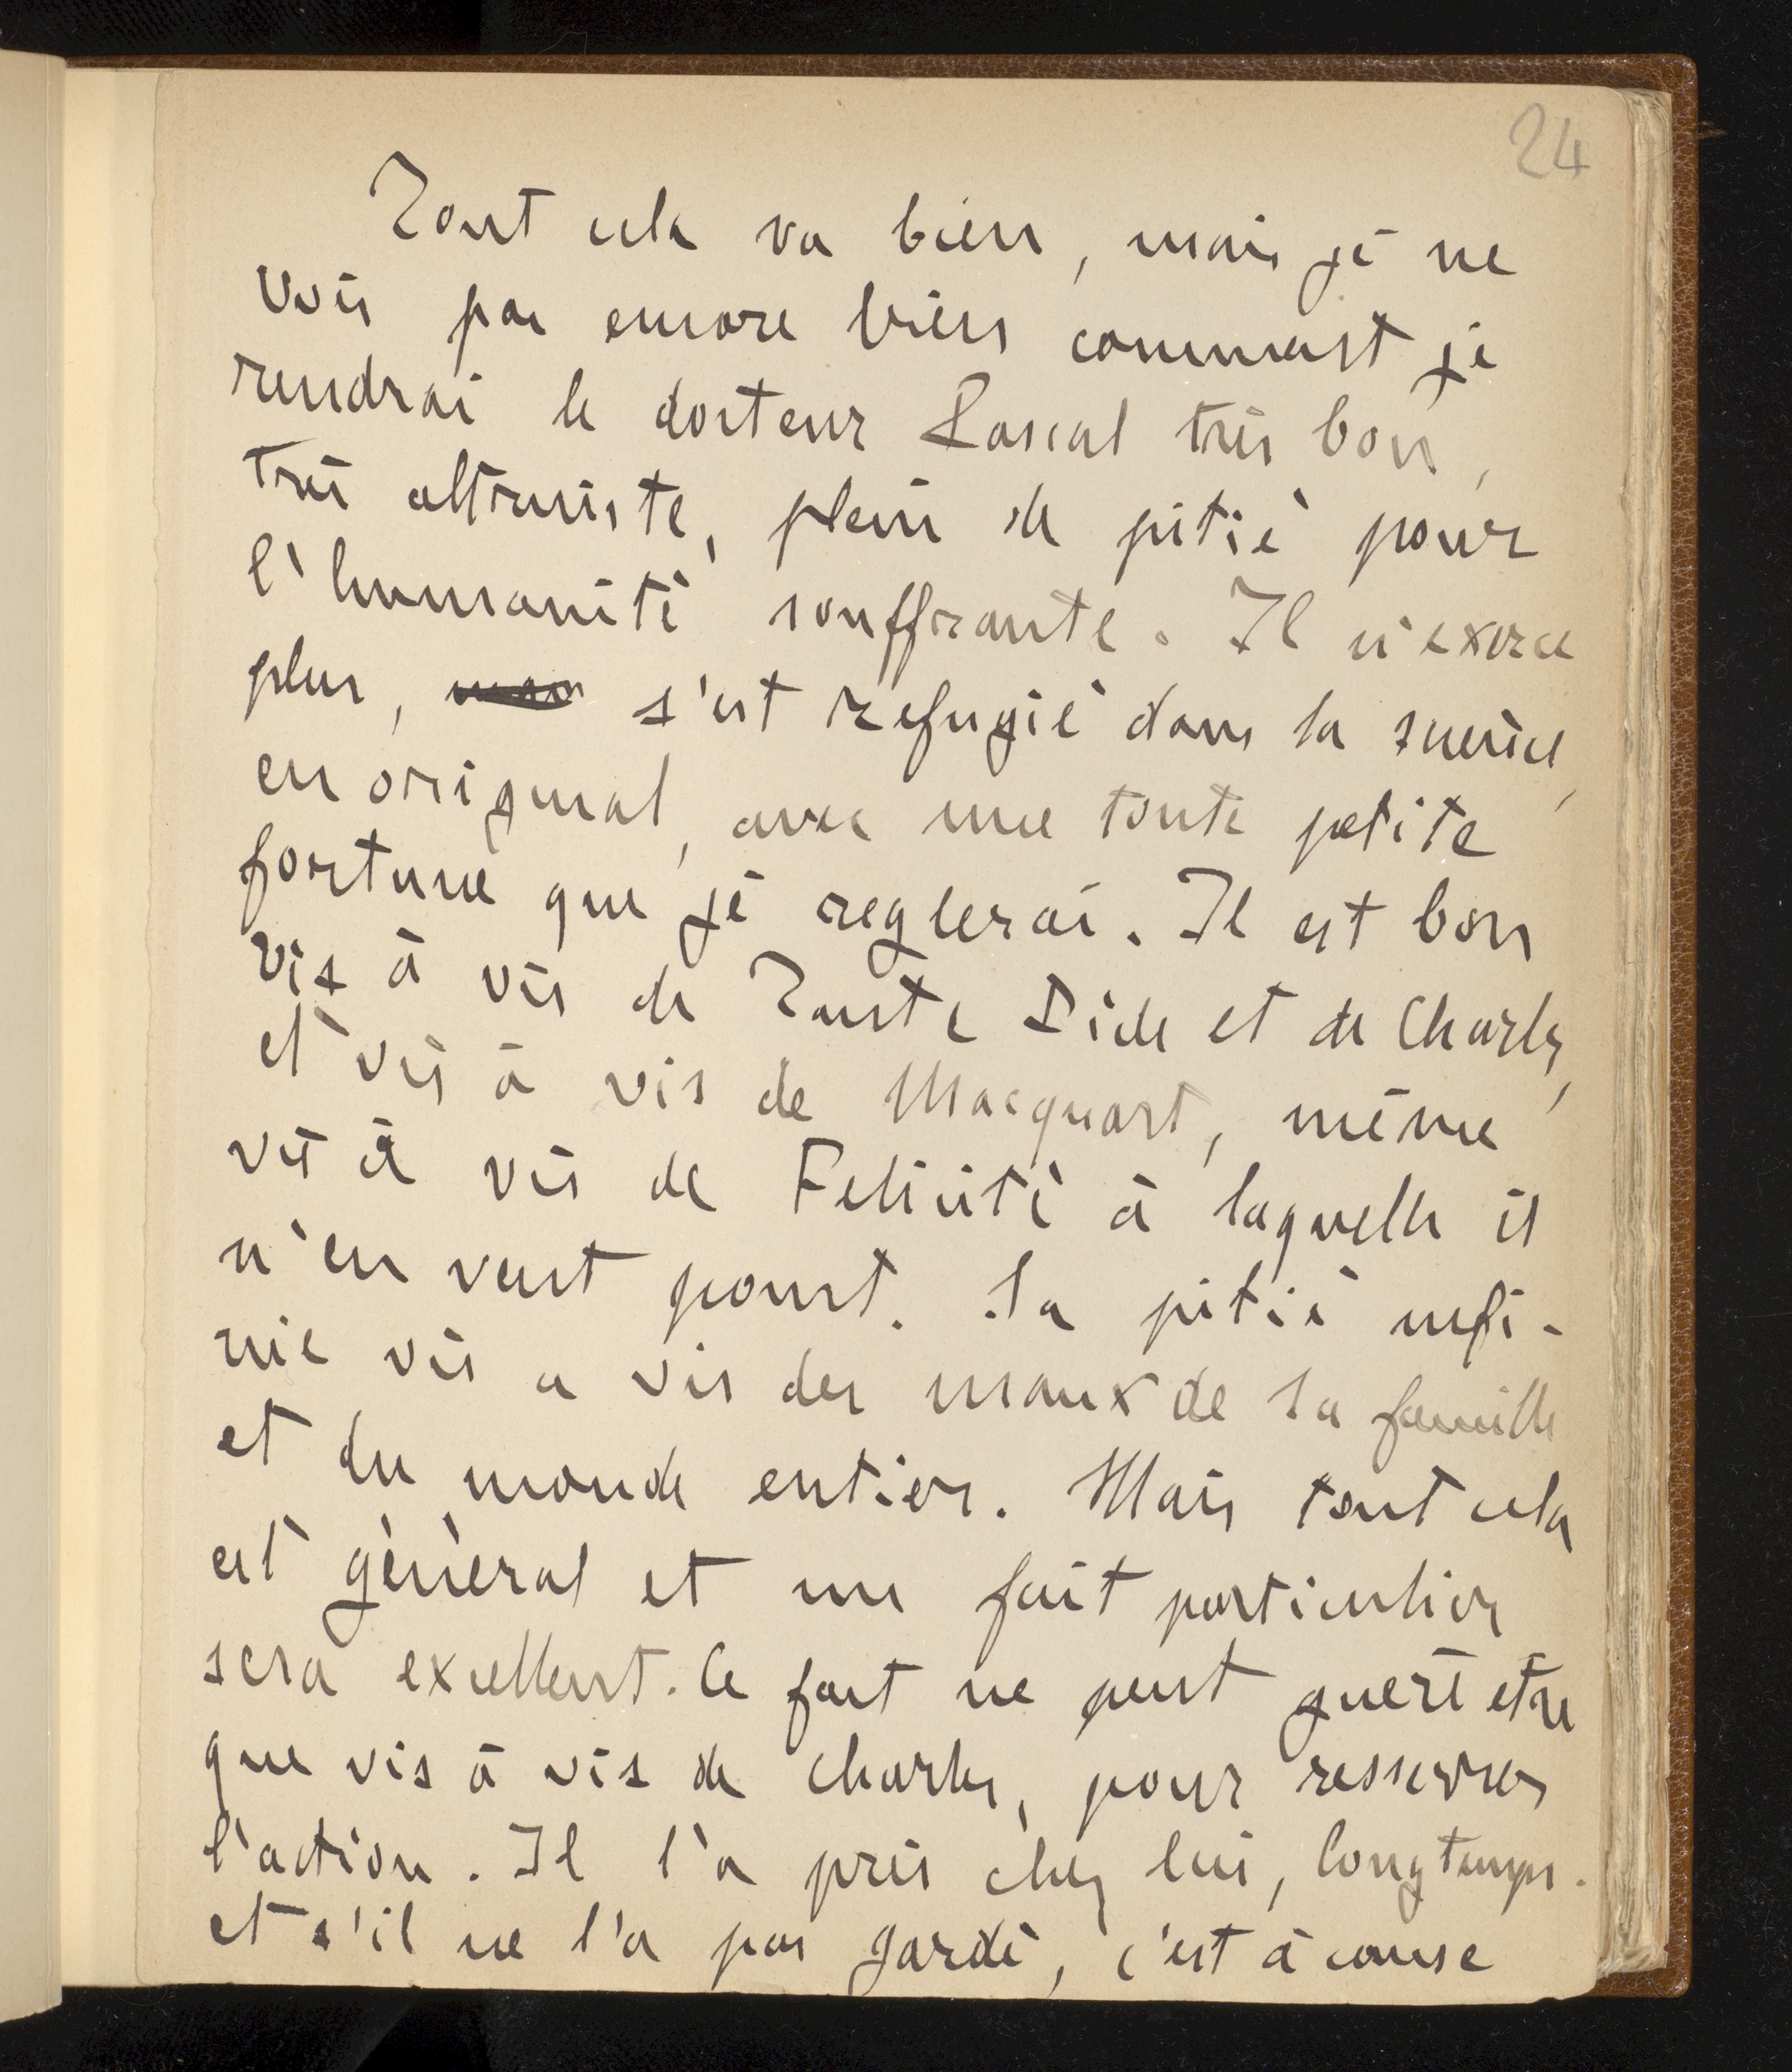 24
Tout cela va bien, mais je ne
vois pas encore bien comment je
rendrai le docteur Pascal très bon,
très altruiste, plein de pitié pour
l'humanité souffrante. Il n'exerce
plus, s'est refugié dans la science,
en original, avec une toute petite
fortune que je reglerai. Il est bon
vis à vis de Tante Dide et de Charles,
et vis à vis de Macquart, même
vis à vis de Felicité à laquelle il
n'en veut point. Sa pitié infi-
nie vis a vis des maux de sa famille
et du monde entier. Mais tout cela
est général et un fait particulier
sera excellent. Ce fait ne peut guere etre
que vis à vis de Charles, pour resserrer
l'action. Il l'a pris chez lui, longtemps.
et s'il ne l'a pas gardé, c'est à cause